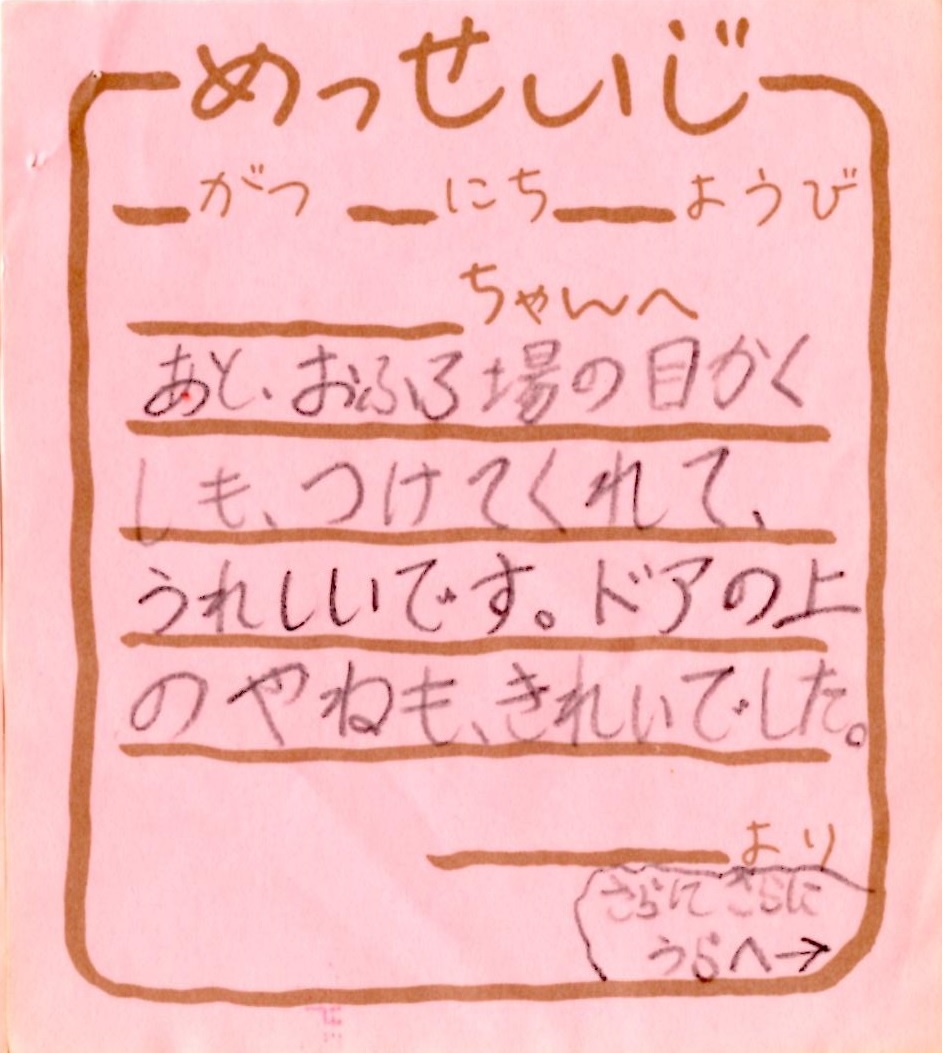 めっせいじ
がつ にち ようび
ちゃんへ
あと、おふろ場の目かく
しも、つけてくれて、
うれしいです。ドアの上
のやねも、きれいでした。
より
さらにさらに
うらへ→